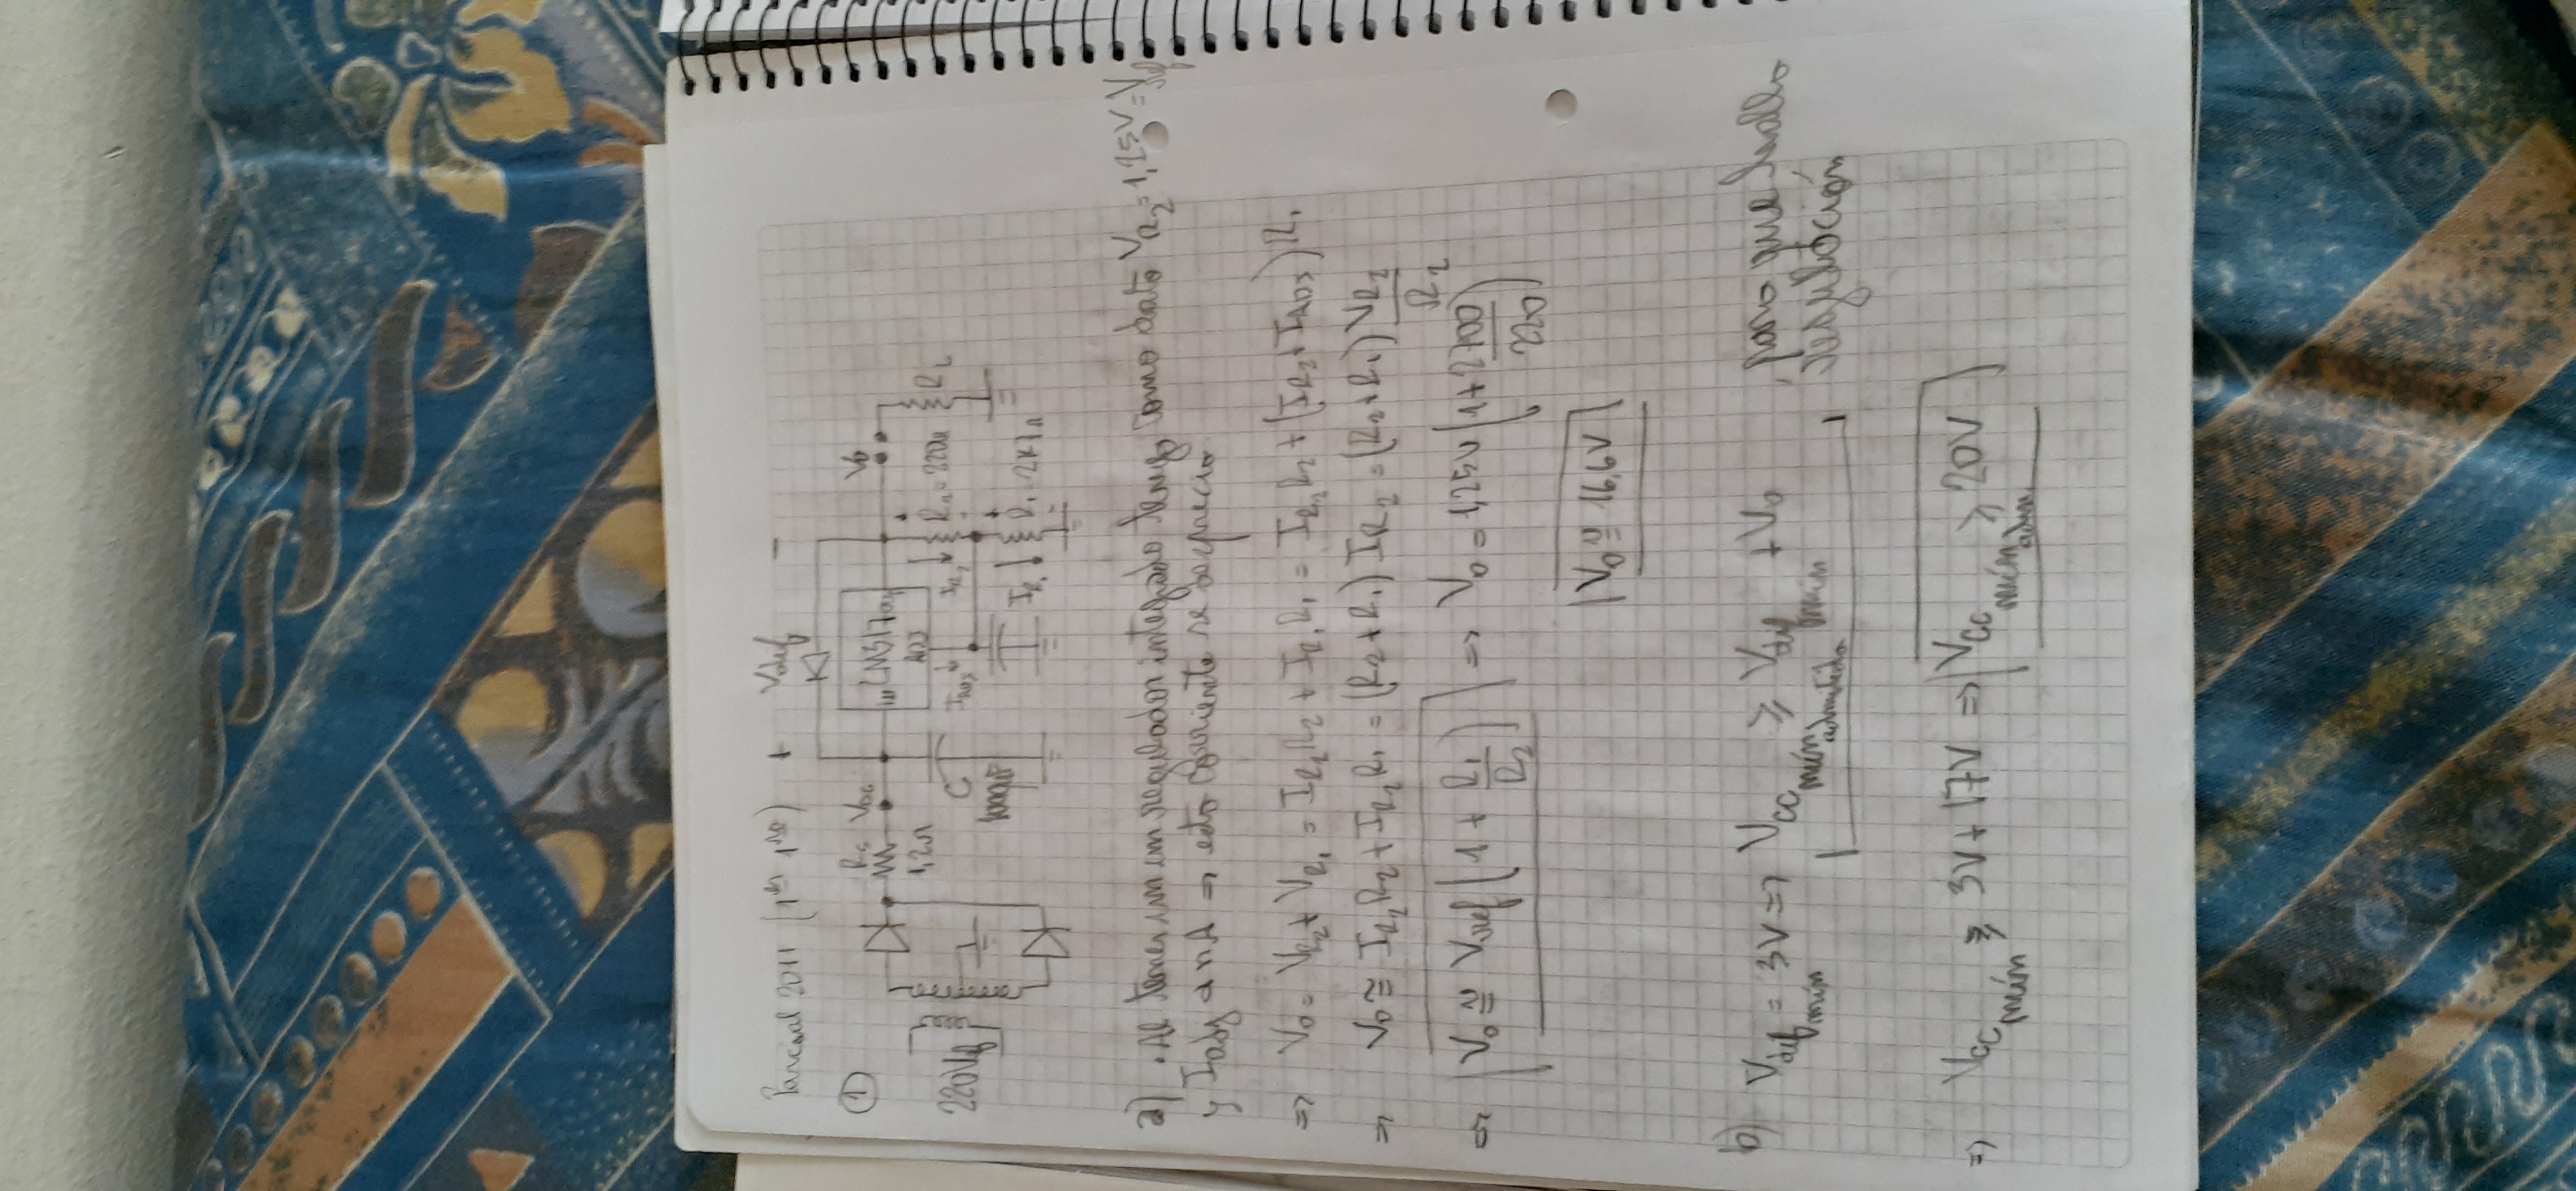 Parcial 2011 (1er 1ra)
+ Vdif −
①
Rs VDC
1,2Ω
in LM317 out
ADJ
Vo
220Vef
C
1000µF
IADJ
IR2
R2 = 220Ω
RL
IR1
R1 = 2K7Ω
a) . Al tener un un regulador integrado tengo como dato VR2 = 1,25V = Vref
y Iadj α nA ⇒ esta corriente se desprecia
⇒ Vo = VR2 + VR1 = IR2 R2 + IR1 R1 = IR2 R2 + (IR2 + IADJ) R1
⇒ Vo ≅ IR2 R2 + IR2 R1 = (R2 + R1) IR2 = (R2 + R1) VR2 / R2
⇒ Vo ≅ Vref (1 + R1 / R2) ⇒ Vo = 1,25V (1 + 2700 / 220)
Vo ≅ 16,6V
b) Vdif mín = 3V ⇒ VCC mín admitida ≥ Vdif mín + Vo , para que halla
regulación
⇒ VCC mín ≥ 3V + 17V ⇒ VCC mín adm ≥ 20V